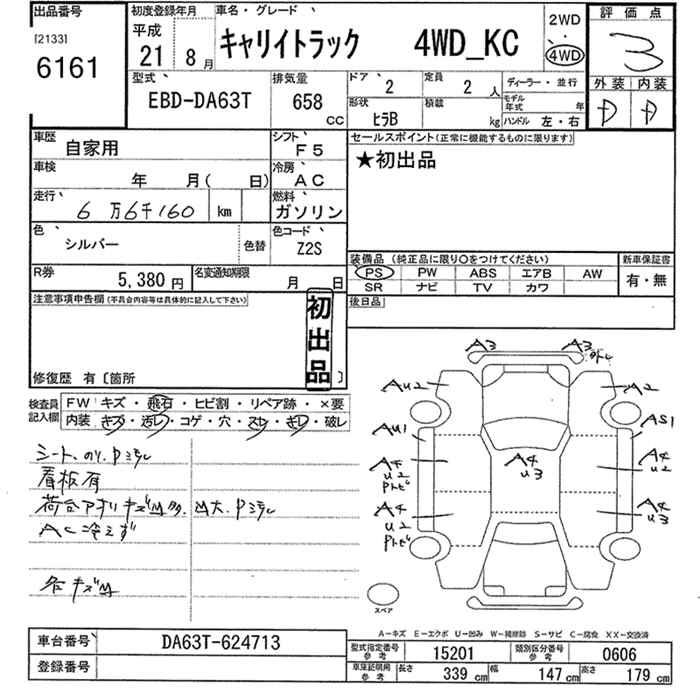 出品番号
[2133]
6161
初度登録年月
平成
21年 8月
車名・グレード
キャリイトラック 4WD_KC
2WD
・
4WD
評価点
3
外装 内装
D D
型式
EBD-DA63T
排気量
658 CC
ドア 2
定員 2 人
ディーラー・並行
モデル年式 年
形状 ヒラB
積載 kg
ハンドル 左・右
車歴
自家用
シフト
F5
車検
年 月( 日)
冷房
AC
走行
6万6千160 km
燃料
ガソリン
色
シルバー
色替
色コード
Z2S
R券
5,380 円
名変通知期限
月 日
セールスポイント(正常に機能するものに限ります)
★初出品
装備品(純正品に限り○をつけてください)
PS PW ABS エアB AW
SR ナビ TV カワ
新車保証書
有・無
後日品
注意事項申告欄(不具合内容等は具体的に記入して下さい)
初出品
修復歴 有〔箇所 〕
検査員記入欄
FW キズ・飛石・ヒビ割・リペア跡・×要
内装 キズ・汚レ・コゲ・穴・スレ・キレ・破レ
シート、のり、Dミラレ
看板有
荷台アオリキズM多、凹大、Dミラレ
AC冷えず
各キズM
A3 A3
AU2 A2
AU1 AS1
A4 U2 Pトビ
A4 U3
A4 U2
A4 U2 Pトビ
A4 U3
スペア
A-キズ E-エクボ U-凹み W-補修跡 S-サビ C-腐食 XX-交換済
車台番号 DA63T-624713
登録番号
型式指定番号 参考 15201
類別区分番号 参考 0606
車庫証明用 参考 長さ 339 cm 幅 147 cm 高さ 179 cm